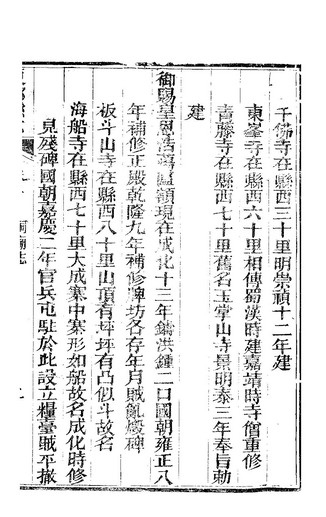 千佛寺在縣西三十里明崇禎十二年建
東峯寺在縣西六十里相傳蜀漢時建嘉靖時寺僧重修
青藤寺在縣西七十里舊名玉掌山寺景明泰三年奉旨勅
建
御賜皇恩浩蕩匾額現在成化十三年鑄洪鍾二口國朝雍正八
年補修正殿乾隆九年補修牌坊各存年月賊亂燬碑
板斗山寺在縣西八十里山頂有坪坪有凸似斗故名
海船寺在縣西七十里大成寨中寨形如船故名成化時修
見殘碑國朝嘉慶二年官兵屯駐於此設立糧臺賊平撤
祠廟志